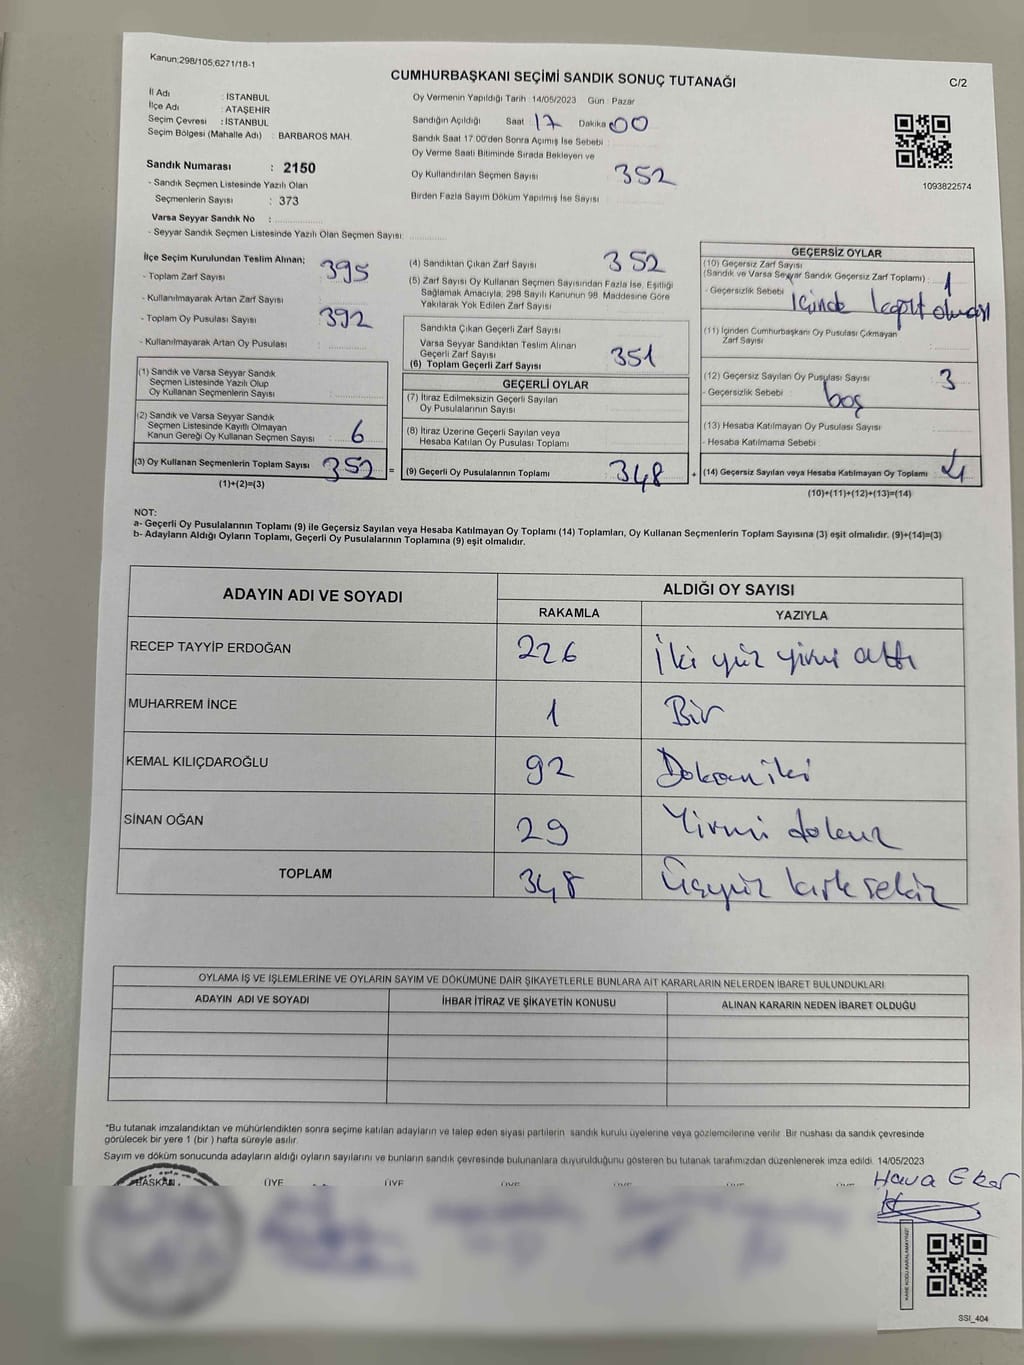 Kanun;298/105,6271/18-1
CUMHURBAŞKANI SEÇİMİ SANDIK SONUÇ TUTANAĞI
C/2
İl Adı : İSTANBUL
İlçe Adı : ATAŞEHİR
Seçim Çevresi : İSTANBUL
Seçim Bölgesi (Mahalle Adı) : BARBAROS MAH.
Sandık Numarası : 2150
- Sandık Seçmen Listesinde Yazılı Olan
Seçmenlerin Sayısı : 373
Varsa Seyyar Sandık No :
- Seyyar Sandık Seçmen Listesinde Yazılı Olan Seçmen Sayısı:
Oy Vermenin Yapıldığı Tarih : 14/05/2023 Gün : Pazar
Sandığın Açıldığı Saat 17 Dakika 00
Sandık Saat 17:00'den Sonra Açımış İse Sebebi :
Oy Verme Saati Bitiminde Sırada Bekleyen ve
Oy Kullandırılan Seçmen Sayısı 352
Birden Fazla Sayım Döküm Yapılmış İse Sayısı
1093822574
İlçe Seçim Kurulundan Teslim Alınan;
- Toplam Zarf Sayısı 395
- Kullanılmayarak Artan Zarf Sayısı
- Toplam Oy Pusulası Sayısı 392
- Kullanılmayarak Artan Oy Pusulası
(1) Sandık ve Varsa Seyyar Sandık
Seçmen Listesinde Yazılı Olup
Oy Kullanan Seçmenlerin Sayısı
(2) Sandık ve Varsa Seyyar Sandık
Seçmen Listesinde Kayıtlı Olmayan
Kanun Gereği Oy Kullanan Seçmen Sayısı : 6
(3) Oy Kullanan Seçmenlerin Toplam Sayısı 352 =
(1)+(2)=(3)
(4) Sandıktan Çıkan Zarf Sayısı 352
(5) Zarf Sayısı Oy Kullanan Seçmen Sayısından Fazla İse, Eşitliği
Sağlamak Amacıyla, 298 Sayılı Kanunun 98. Maddesine Göre
Yakılarak Yok Edilen Zarf Sayısı
Sandıkta Çıkan Geçerli Zarf Sayısı
Varsa Seyyar Sandıktan Teslim Alınan
Geçerli Zarf Sayısı
(6) Toplam Geçerli Zarf Sayısı 351
GEÇERLİ OYLAR
(7) İtiraz Edilmeksizin Geçerli Sayılan
Oy Pusulalarının Sayısı
(8) İtiraz Üzerine Geçerli Sayılan veya
Hesaba Katılan Oy Pusulası Toplamı
(9) Geçerli Oy Pusulalarının Toplamı 348 +
GEÇERSİZ OYLAR
(10) Geçersiz Zarf Sayısı
(Sandık ve Varsa Seyyar Sandık Geçersiz Zarf Toplamı) : 1
- Geçersizlik Sebebi : içinde
(11) İçinden Cumhurbaşkanı Oy Pusulası Çıkmayan
Zarf Sayısı
(12) Geçersiz Sayılan Oy Pusulası Sayısı 3
- Geçersizlik Sebebi : boş
(13) Hesaba Katılmayan Oy Pusulası Sayısı
- Hesaba Katılmama Sebebi :
(14) Geçersiz Sayılan veya Hesaba Katılmayan Oy Toplamı 4
(10)+(11)+(12)+(13)=(14)
NOT:
a- Geçerli Oy Pusulalarının Toplamı (9) ile Geçersiz Sayılan veya Hesaba Katılmayan Oy Toplamı (14) Toplamları, Oy Kullanan Seçmenlerin Toplam Sayısına (3) eşit olmalıdır. (9)+(14)=(3)
b- Adayların Aldığı Oyların Toplamı, Geçerli Oy Pusulalarının Toplamına (9) eşit olmalıdır.
ADAYIN ADI VE SOYADI
ALDIĞI OY SAYISI
RAKAMLA YAZIYLA
RECEP TAYYİP ERDOĞAN 226 İki yüz yirmi altı
MUHARREM İNCE 1 Bir
KEMAL KILIÇDAROĞLU 92 Doksan iki
SİNAN OĞAN 29 Yirmi dokuz
TOPLAM 348 Üçyüz kırk sekiz
OYLAMA İŞ VE İŞLEMLERİNE VE OYLARIN SAYIM VE DÖKÜMÜNE DAİR ŞİKAYETLERLE BUNLARA AİT KARARLARIN NELERDEN İBARET BULUNDUKLARI
ADAYIN ADI VE SOYADI İHBAR İTİRAZ VE ŞİKAYETİN KONUSU ALINAN KARARIN NEDEN İBARET OLDUĞU
*Bu tutanak imzalandıktan ve mühürlendikten sonra seçime katılan adayların ve talep eden siyasi partilerin sandık kurulu üyelerine veya gözlemcilerine verilir. Bir nüshası da sandık çevresinde
görülecek bir yere 1 (bir ) hafta süreyle asılır.
Sayım ve döküm sonucunda adayların aldığı oyların sayılarını ve bunların sandık çevresinde bulunanlara duyurulduğunu gösteren bu tutanak tarafımızdan düzenlenerek imza edildi. 14/05/2023
BAŞKAN ÜYE ÜYE ÜYE ÜYE ÜYE
Hava
SSI_404